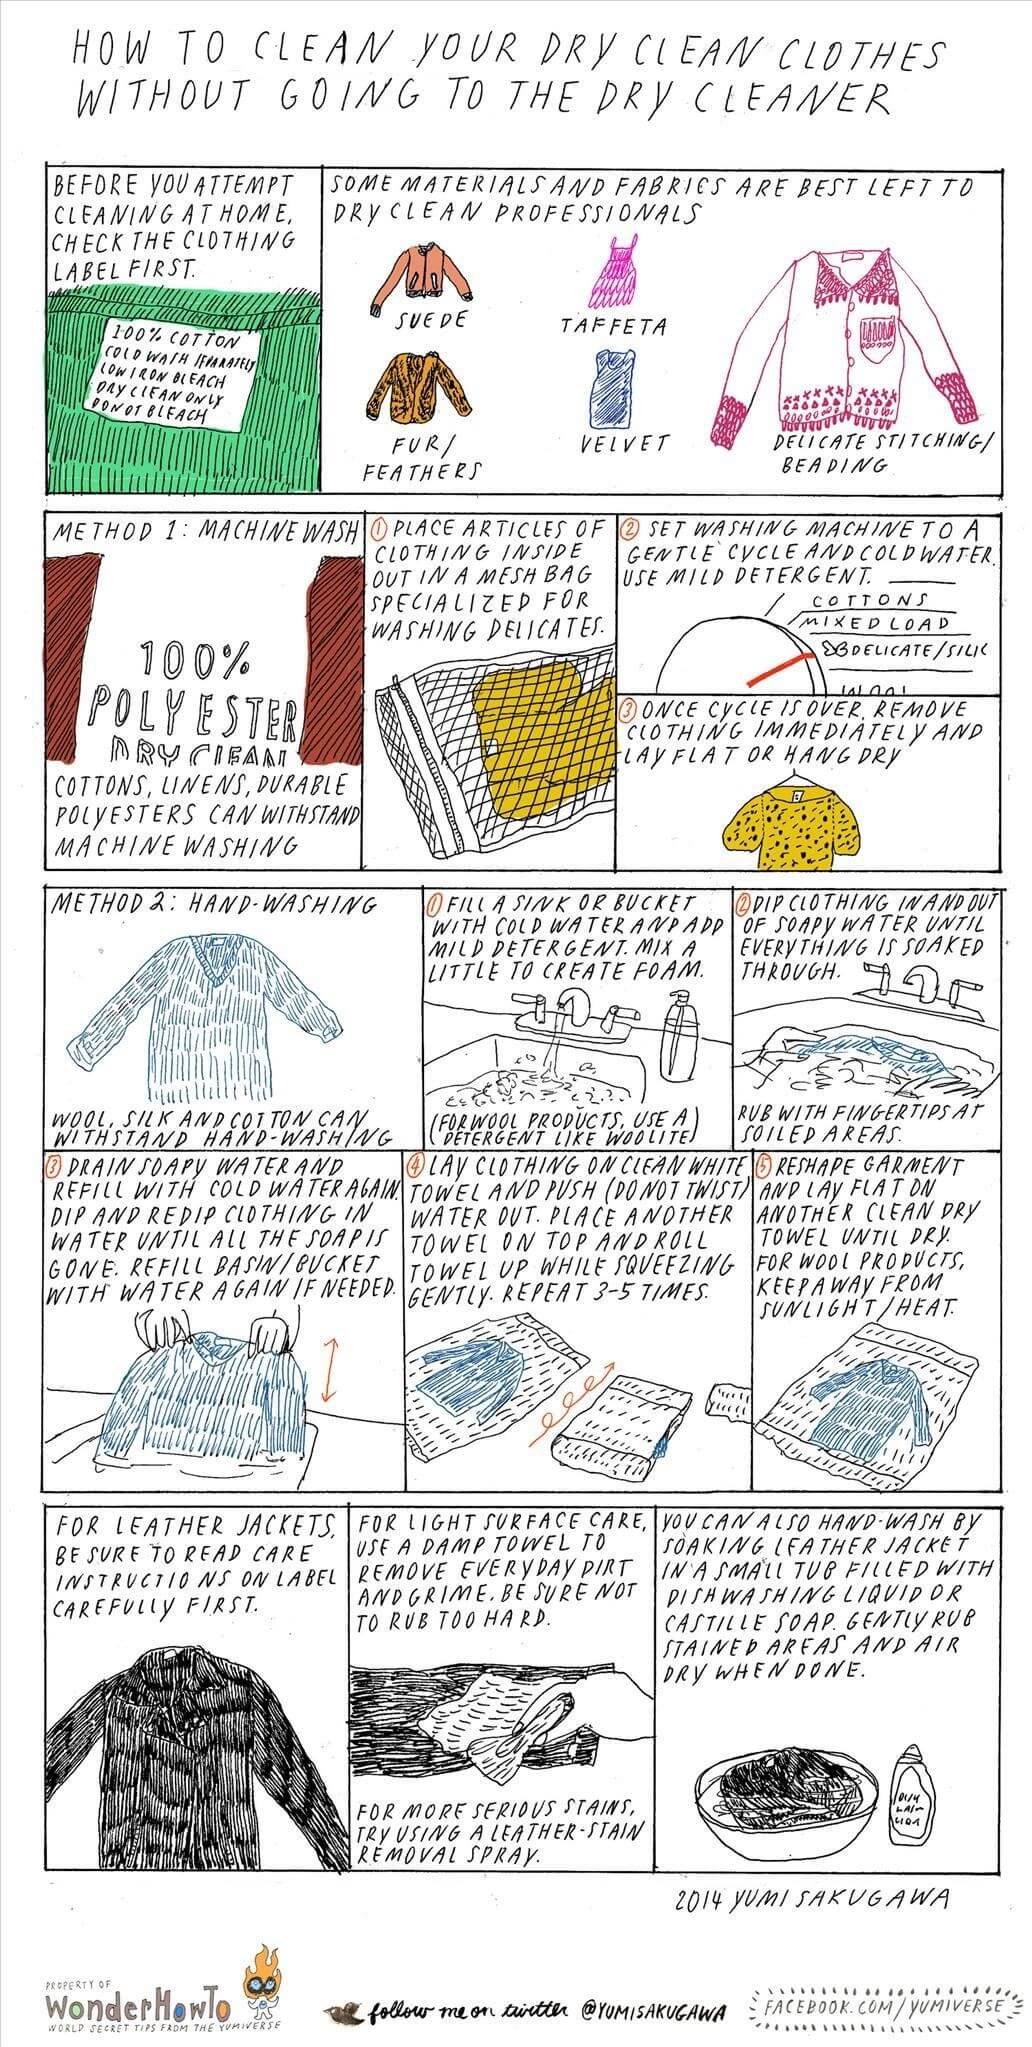 HOW TO CLEAN YOUR DRY CLEAN CLOTHES
WITHOUT GOING TO THE DRY CLEANER
BEFORE YOU ATTEMPT
CLEANING AT HOME,
CHECK THE CLOTHING
LABEL FIRST.
100% COTTON
COLD WASH SEPARATELY
LOW IRON BLEACH
DRY CLEAN ONLY
DO NOT BLEACH
SOME MATERIALS AND FABRICS ARE BEST LEFT TO
DRY CLEAN PROFESSIONALS
SUEDE
TAFFETA
FUR/
FEATHERS
VELVET
DELICATE STITCHING/
BEADING
METHOD 1: MACHINE WASH
100%
POLYESTER
DRY CLEAN
COTTONS, LINENS, DURABLE
POLYESTERS CAN WITHSTAND
MACHINE WASHING
① PLACE ARTICLES OF
CLOTHING INSIDE
OUT IN A MESH BAG
SPECIALIZED FOR
WASHING DELICATES.
② SET WASHING MACHINE TO A
GENTLE CYCLE AND COLD WATER.
USE MILD DETERGENT.
COTTONS
MIXED LOAD
DELICATE/SILK
WOOL
③ ONCE CYCLE IS OVER, REMOVE
CLOTHING IMMEDIATELY AND
LAY FLAT OR HANG DRY
METHOD 2: HAND-WASHING
WOOL, SILK AND COTTON CAN
WITHSTAND HAND-WASHING
① FILL A SINK OR BUCKET
WITH COLD WATER AND ADD
MILD DETERGENT. MIX A
LITTLE TO CREATE FOAM.
(FOR WOOL PRODUCTS, USE A
DETERGENT LIKE WOOLITE)
② DIP CLOTHING IN AND OUT
OF SOAPY WATER UNTIL
EVERYTHING IS SOAKED
THROUGH.
RUB WITH FINGERTIPS AT
SOILED AREAS.
③ DRAIN SOAPY WATER AND
REFILL WITH COLD WATER AGAIN.
DIP AND REDIP CLOTHING IN
WATER UNTIL ALL THE SOAP IS
GONE. REFILL BASIN/BUCKET
WITH WATER AGAIN IF NEEDED.
④ LAY CLOTHING ON CLEAN WHITE
TOWEL AND PUSH (DO NOT TWIST)
WATER OUT. PLACE ANOTHER
TOWEL ON TOP AND ROLL
TOWEL UP WHILE SQUEEZING
GENTLY. REPEAT 3-5 TIMES.
⑤ RESHAPE GARMENT
AND LAY FLAT ON
ANOTHER CLEAN DRY
TOWEL UNTIL DRY.
FOR WOOL PRODUCTS,
KEEP AWAY FROM
SUNLIGHT/HEAT.
FOR LEATHER JACKETS,
BE SURE TO READ CARE
INSTRUCTIONS ON LABEL
CAREFULLY FIRST.
FOR LIGHT SURFACE CARE,
USE A DAMP TOWEL TO
REMOVE EVERYDAY DIRT
AND GRIME. BE SURE NOT
TO RUB TOO HARD.
FOR MORE SERIOUS STAINS,
TRY USING A LEATHER-STAIN
REMOVAL SPRAY.
YOU CAN ALSO HAND-WASH BY
SOAKING LEATHER JACKET
IN A SMALL TUB FILLED WITH
DISHWASHING LIQUID OR
CASTILLE SOAP. GENTLY RUB
STAINED AREAS AND AIR
DRY WHEN DONE.
2014 YUMI SAKUGAWA
PROPERTY OF
WonderHowTo
WORLD SECRET TIPS FROM THE YUMIVERSE
follow me on twitter @YUMISAKUGAWA
FACEBOOK.COM/YUMIVERSE